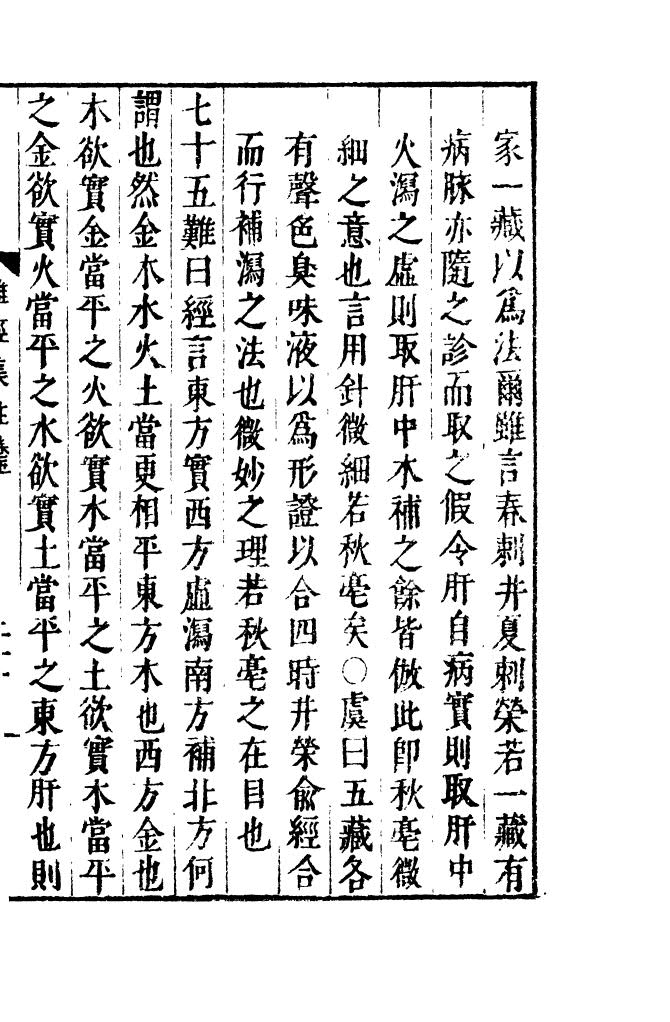 家一藏以爲法爾雖言春刺井夏刺榮若一藏有
病脉亦隨之診而取之假令肝自病實則取肝中
火瀉之虛則取肝中木補之餘皆倣此卽秋亳微
細之意也言用針微細若秋亳矣○虞曰五藏各
有聲色臭味液以爲形證以合四時井榮俞經合
而行補瀉之法也微妙之理若秋亳之在目也
七十五難曰經言東方實西方虛瀉南方補北方何
謂也然金木水火土當更相平東方木也西方金也
木欲實金當平之火欲實水當平之土欲實木當平
之金欲實火當平之水欲實土當平之東方肝也則
難經集註卷